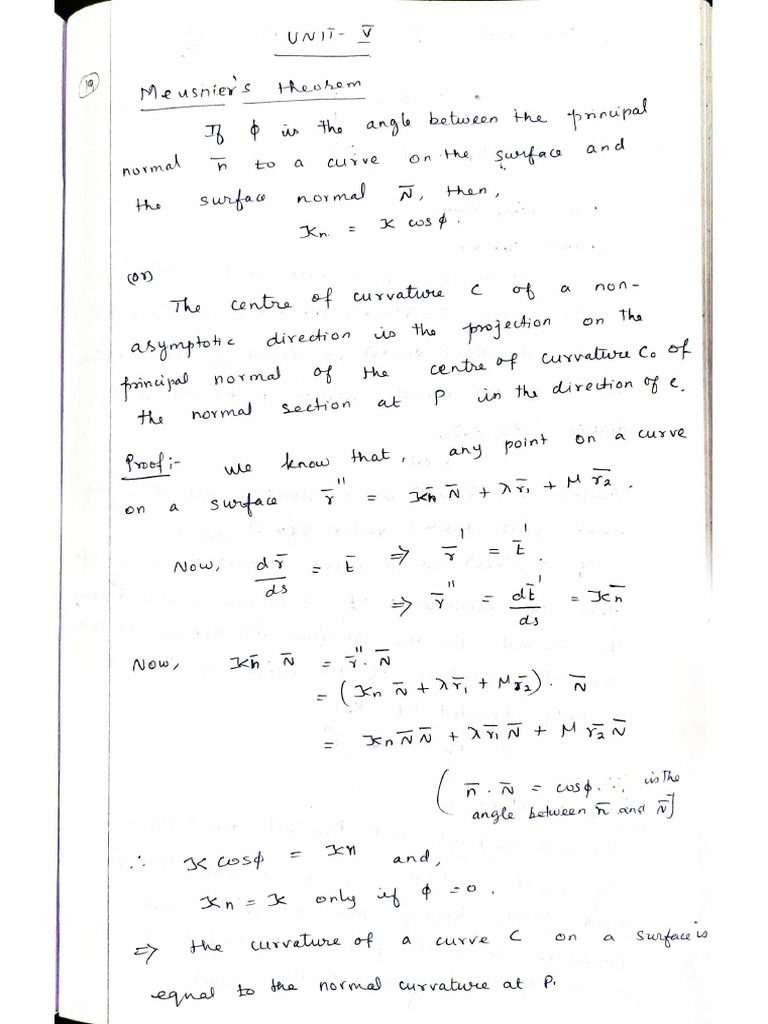 UNIT- V
19
Meusnier's theorem
If ϕ is the angle between the principal
normal n̄ to a curve on the surface and
the surface normal N̄, then,
Kn = K cosϕ.
(or)
The centre of curvature C of a non-
asymptotic direction is the projection on the
principal normal of the centre of curvature C₀ of
the normal section at P in the direction of c.
Proof:- We know that, any point on a curve
on a surface r̄'' = Kn̄ N̄ + λ r̄₁ + μ r̄₂.
Now, dr̄/ds = t̄ ⇒ r̄' = t̄'.
⇒ r̄'' = dt̄'/ds = Kn̄
Now, Kn̄ · N̄ = r̄''. N̄
= (Kn N̄ + λ r̄₁ + μ r̄₂) . N̄
= Kn N̄ N̄ + λ r̄₁ N̄ + μ r̄₂ N̄
( n̄ . N̄ = cosϕ ∵ is the
angle between n̄ and N̄ ]
∴ K cosϕ = Kn and,
Kn = K only if ϕ = 0.
⇒ the curvature of a curve C on a surface is
equal to the normal curvature at P.